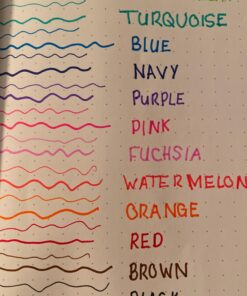 TURQUOISE
BLUE
NAVY
PURPLE
PINK
FUCHSIA
WATERMELON
ORANGE
RED
BROWN
BLACK